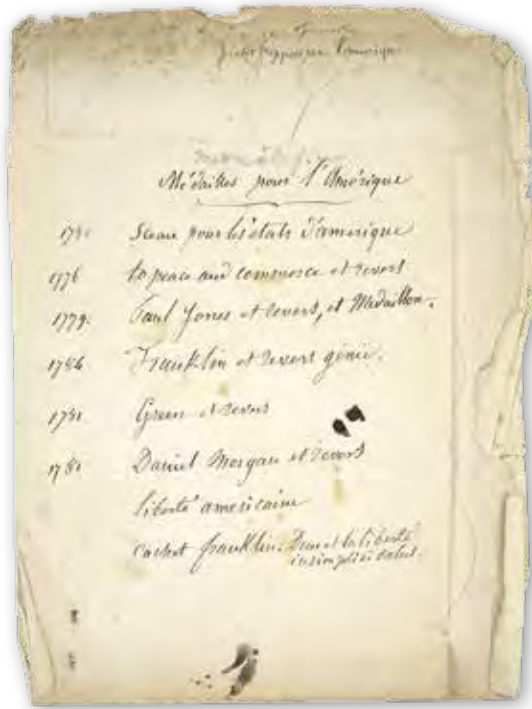 Médailles pour l'Amérique
Sceau pour les états d'amerique
1776 to peace and commerce et revers
1779. Paul Jones et revers, et Médaillon.
Franklin et revers génie.
1781 Green et revers
1781 Daniel Morgan et revers
liberté americaine
cachet franklin. Dieu et la liberté